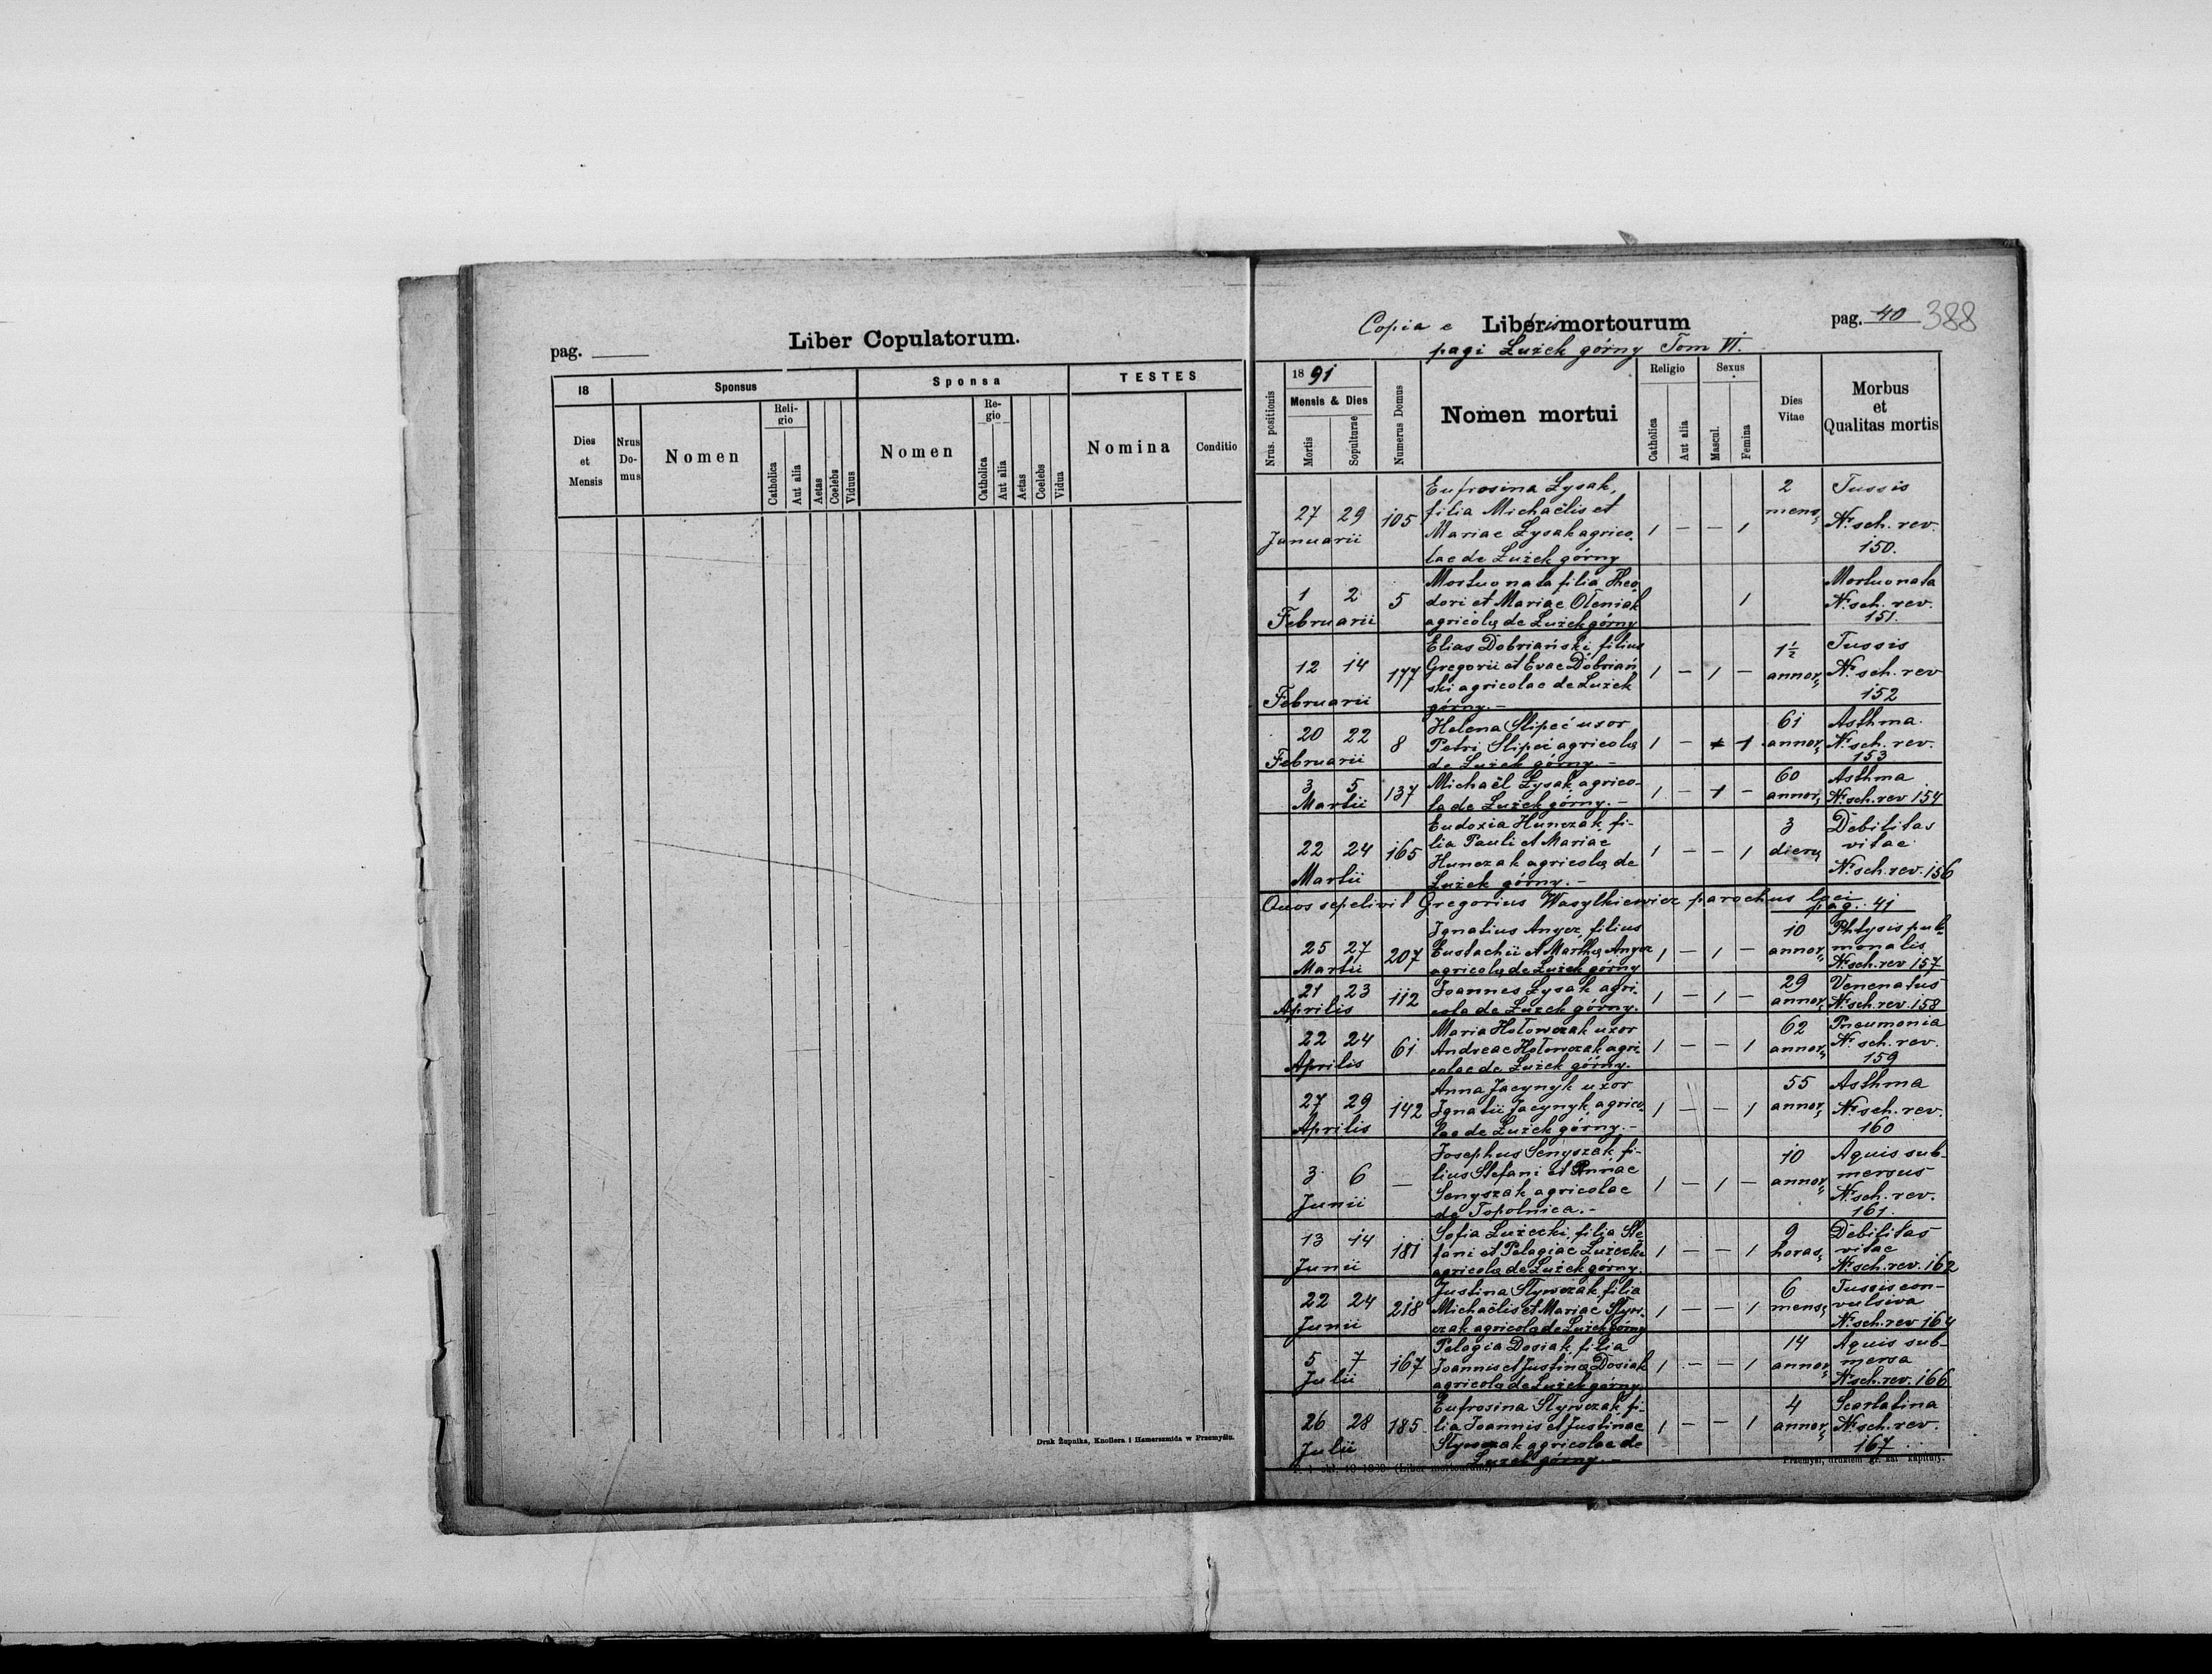 pag.
Liber Copulatorum.
18
Sponsus
Sponsa
TESTES
Dies et Mensis
Nrus Do- mus
Nomen
Reli- gio
Catholica
Aut alia
Aetas
Coelebs
Viduus
Nomen
Re- gio
Catholica
Aut alia
Aetas
Coelebs
Vidua
Nomina
Conditio
Druk Żupnika, Knollera i Hamerszmida w Przemyślu.
Copia e Libris mortourum
pag. 40 388
pagi Łużek górny Tom VI.
Nrus. positionis
1891
Mensis & Dies
Mortis
Sopulturae
Numerus Domus
Nomen mortui
Religio
Catholica
Aut alia
Sexus
Mascul.
Femina
Dies Vitae
Morbus
et
Qualitas mortis
Eufrosina Łysak, 2 Tussis
27 29 105 filia Michaëlis et mens, Nr. sch. rev.
Januarii Mariae Łysak agrico- 1 — — 1
lae de Łużek górny 150.
Mortuo nata filia Theo- Mortuonata
1 2 5 dori et Mariae Oleniak 1 Nr. sch. rev.
Februarii agricolę de Łużek górny 151.
Elias Dobriański filius 1½ Tussis
12 14 177 Gregorii et Evae Dobriań 1 — 1 — annor, Nr. sch. rev
ski agricolae de Łużek
Februarii górny. — 152
Helena Slipeć uxor 61 Asthma.
20 22 8 Petri Slipeć agricolę 1 — 1 1 annor, Nr. sch. rev.
Februarii de Łużek górny. — 153
3 5 137 Michaël Łysak agrico- 1 — 1 — 60 Asthma
Martii la de Łużek górny. — annor, Nr. sch. rev 154
Eudoxia Hunczak, fi- 3 Debilitas
22 24 165 lia Pauli et Mariae 1 — — 1 dierų vitae
Hunczak agricolę de
Martii Łużek górny. — Nr. sch. rev. 156
Quos sepelivit Gregorius Wasylkiewicz parochus loci
pag. 41
Ignatius Anycz, filius 10 Phtysis pul-
25 27 207 Eustachii et Marthę Anycz 1 — 1 — annor, monalis
Martii agricolę de Łużek górny Nr. sch. rev 157
21 23 112 Joannes Łysak agri- 1 — 1 — 29 Venenatus
Aprilis cola de Łużek górny. annor, Nr. sch. rev. 158
Maria Hołowczak uxor 62 Pneumonia
22 24 61 Andreae Hołowczak agri- 1 — — 1 annor, Nr. sch. rev.
Aprilis colae de Łużek górny. 159
Anna Jacynyk uxor 55 Asthma
27 29 142 Ignatii Jacynyk, agrico- 1 — — 1 annor, Nr. sch. rev.
Aprilis lae de Łużek górny. — 160
Josephus Senyszak, fi- 10 Aquis sub-
3 6 — lius Stefani et Annae 1 — 1 — annor, mersus
Senyszak agricolae Nr. sch. rev.
Junii de Topolnica. — 161.
Sofia Łużecki, filia Ste 9 Debilitas
13 14 181 fani et Pelagiae Łużecki 1 — — 1 horas, vitae
Junii agricolę de Łużek górny. Nr. sch. rev. 162
Justina Stywczak, filia 6 Tussis con-
22 24 218 Michaëlis et Mariae Styw- 1 — — 1 mens, vulsiva
Junii czak agricolę de Łużek górny Nr. sch. rev 164
Pelagia Dosiak, filia 14 Aquis sub-
5 7 167 Joannis et Justinę Dosiak 1 — — 1 annor, mersa
Julii agricolę de Łużek górny Nr. sch. rev. 166
Eufrosina Stywczak, fi- 4 Scarlatina
26 28 185 lia Joannis et Justinae 1 — — 1 annor, Nr. sch. rev.
Julii Stywczak agricolae de 167
Łużek górny. —
(Liber mortourum.)
Przemyśl, drukiem gr. kat kapituły.